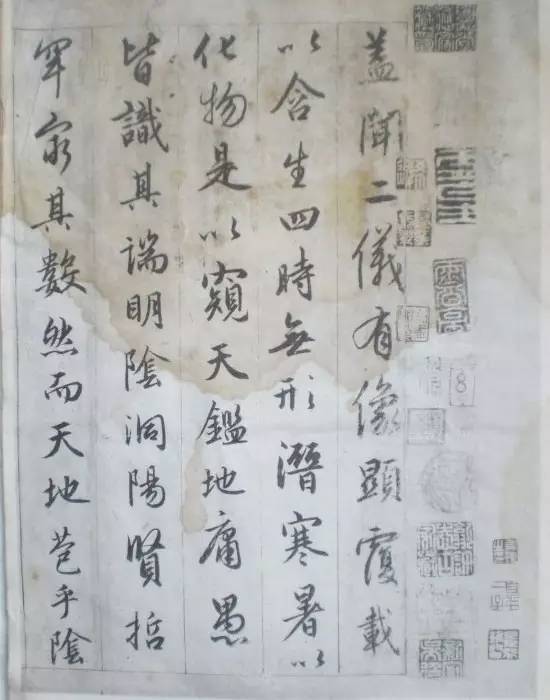 蓋聞二儀有像顯覆載
以含生四時無形潛寒暑以
化物是以窺天鑑地庸愚
皆識其端明陰洞陽賢哲
罕窮其數然而天地苞乎陰